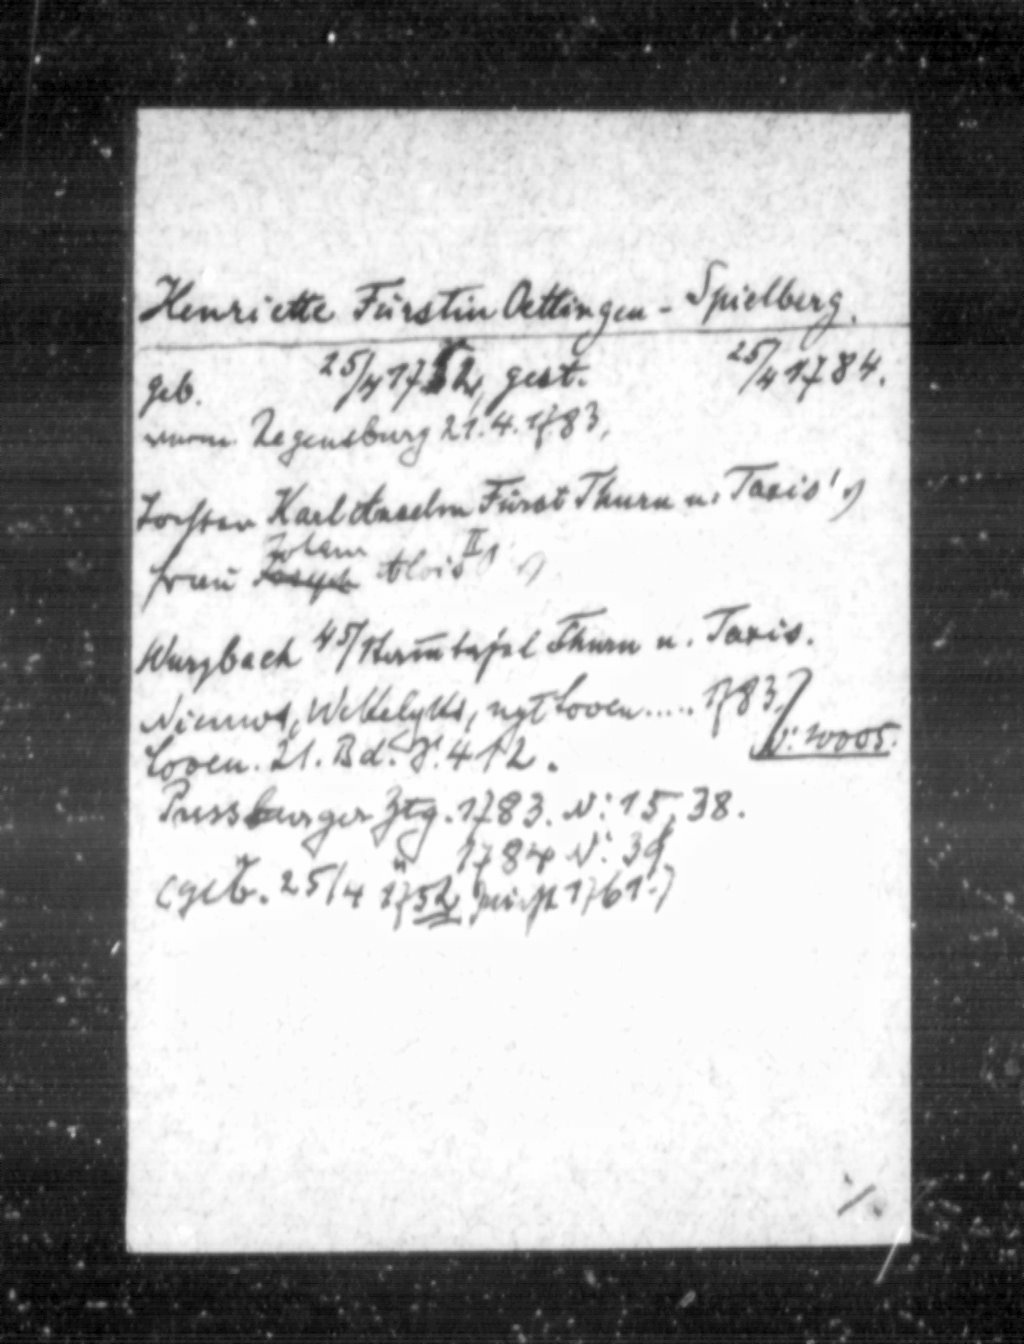 Henriette Fürstin Oettingen - Spielberg.
geb. 25/4 1752, gest. 25/4 1784.
verm. Regensburg 21.4.1783,
Tochter Karl Anselm Fürst Thurn u. Taxis
Frau Johann Alois II
Wurzbach 45/Stammtafel Thurn u. Taxis.
Nieuws, Wekelyks, uyt Loven..... 1783.
Loven. 21. Bd. S. 412. N: 10005.
Pressburger Ztg. 1783. N: 15, 38.
" 1784 N: 39
(geb. 25/4 1752 nicht 1761.)